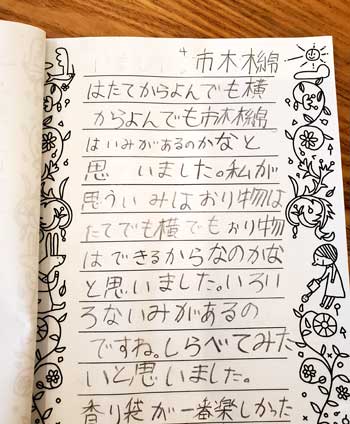 市木綿
はたてからよんでも横
からよんでも市木綿
はいみがあるのかなと
思 いました。私が
思ういみはおり物は
たてでも横でもおり物
はできるからなのかな
と思いました。いろい
ろないみがあるの
ですね。しらべてみた
いと思いました。
香り袋が一番楽しかった